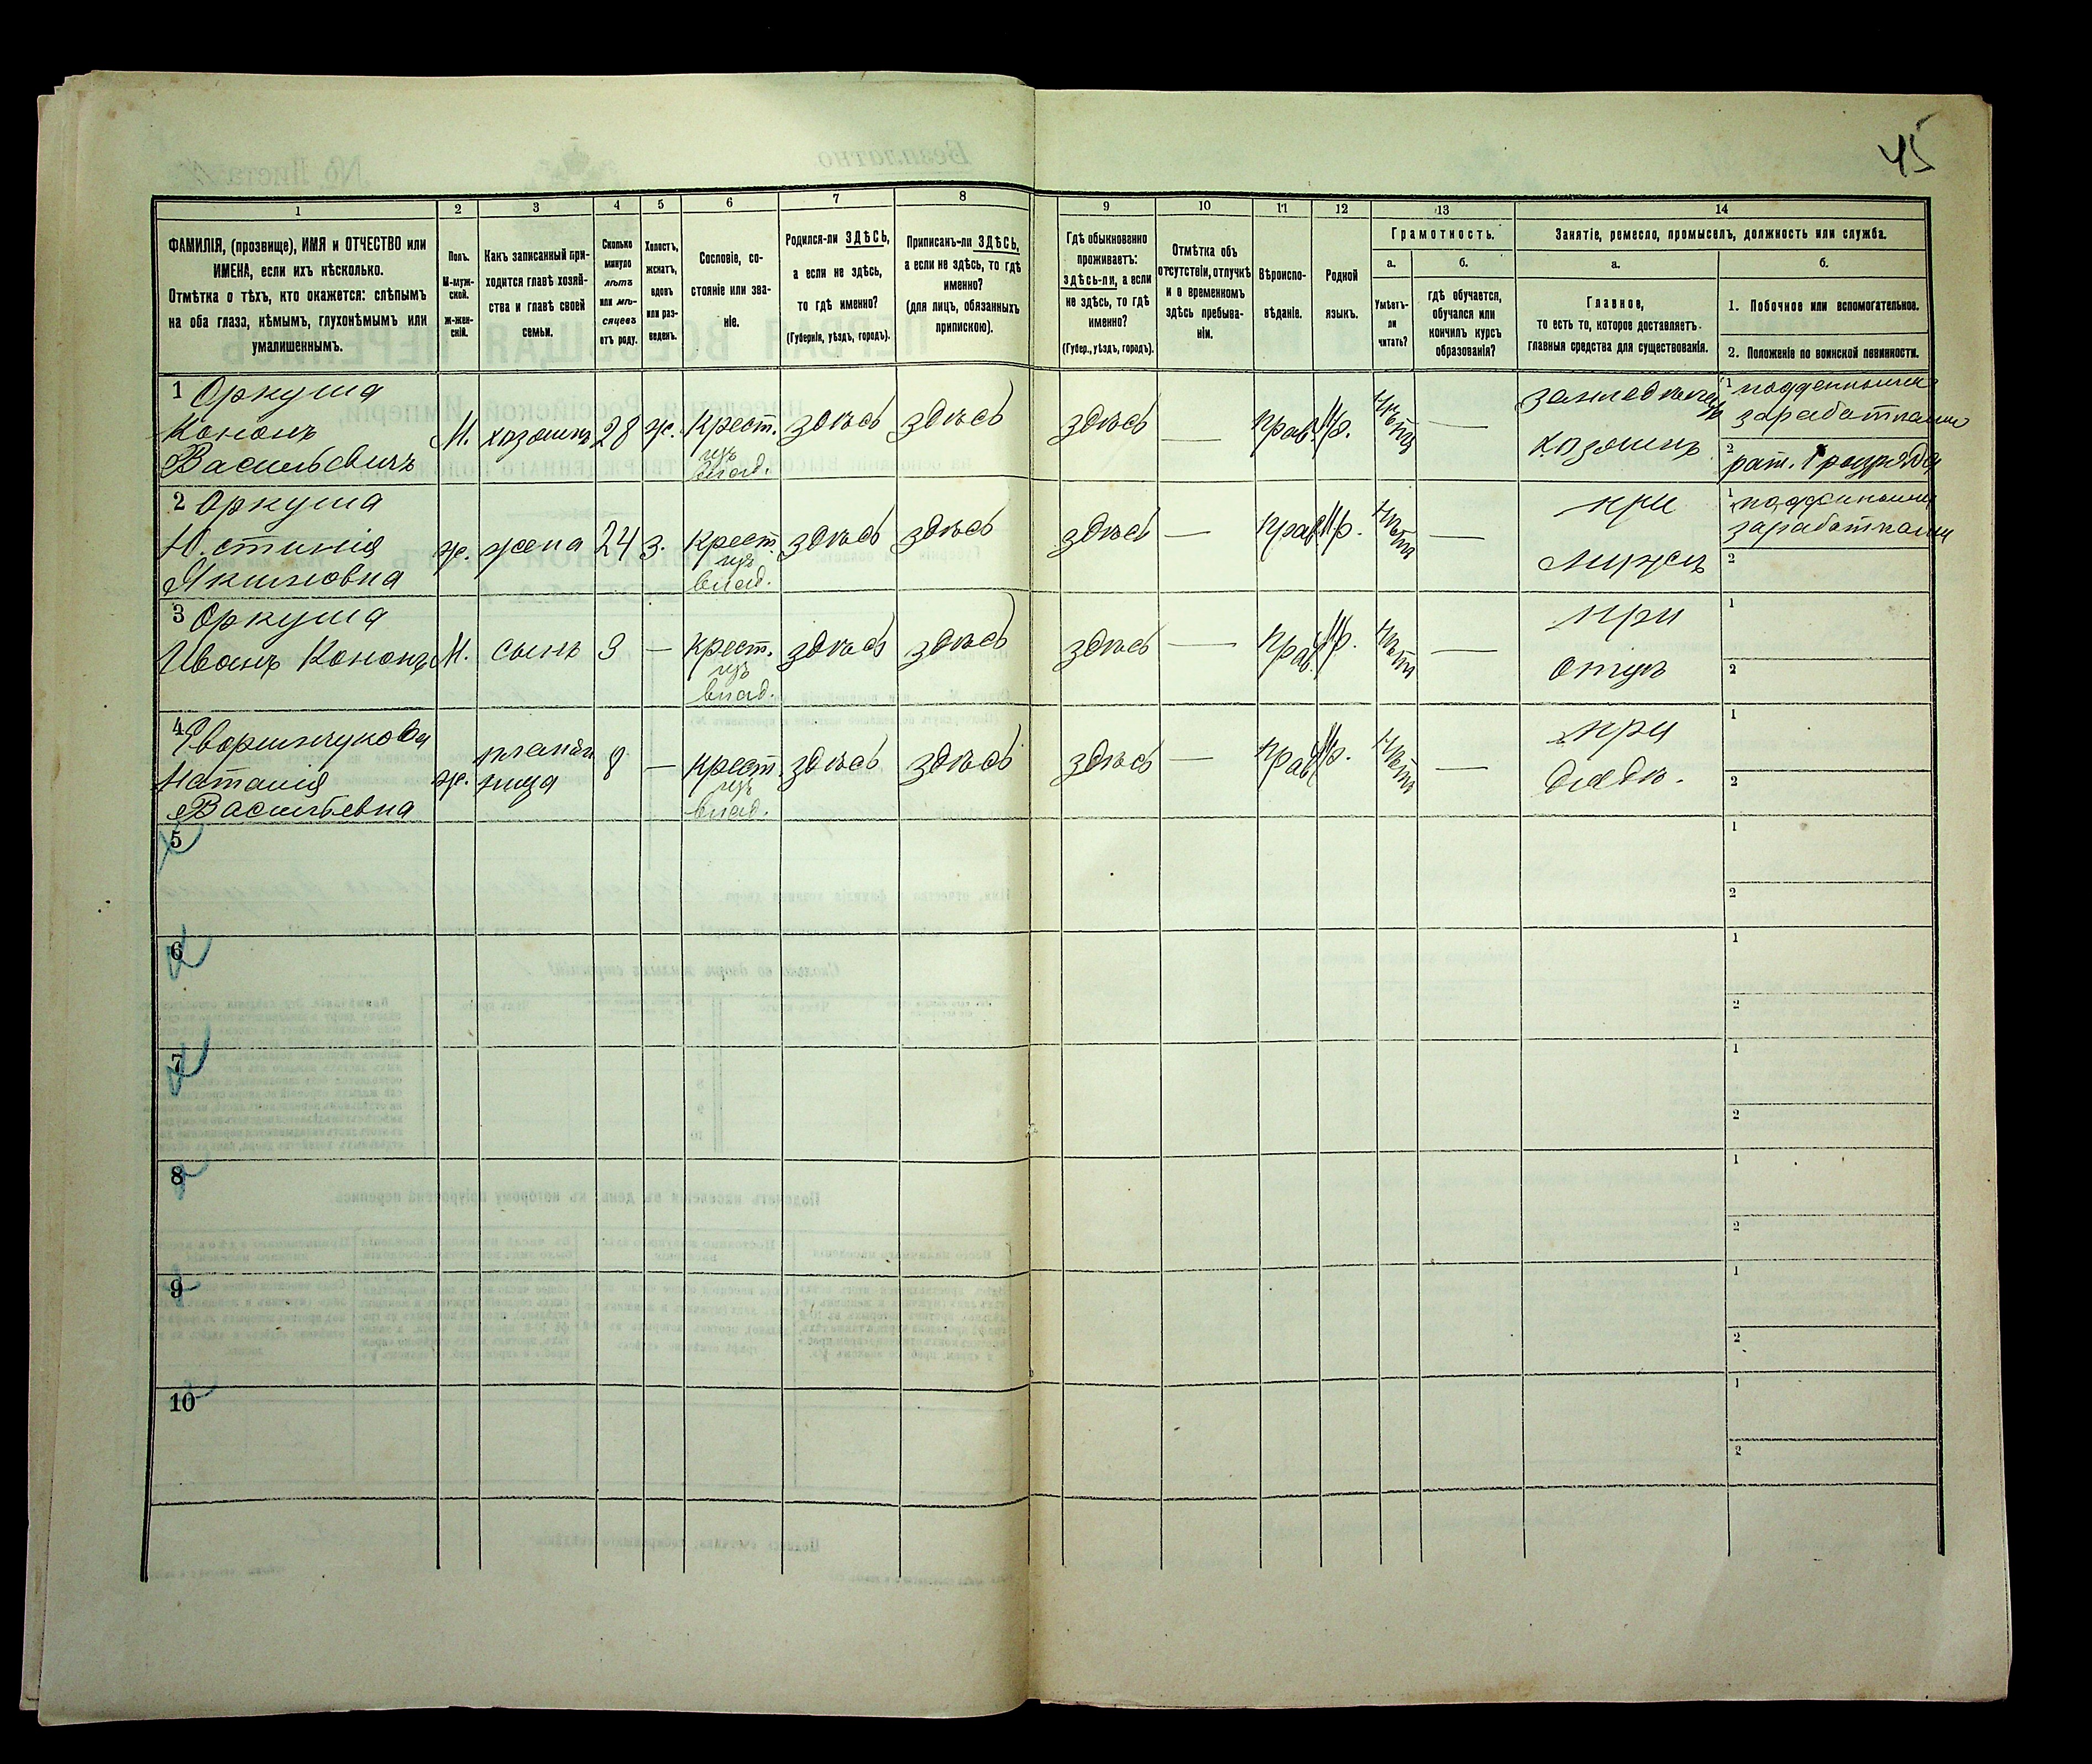 45
1 2 3 4 5 6 7 8 9 10 11 12 13 14
ФАМИЛІЯ, (прозвище), ИМЯ и ОТЧЕСТВО или
ИМЕНА, если ихъ нѣсколько.
Отмѣтка о тѣхъ, кто окажется: слѣпымъ
на оба глаза, нѣмымъ, глухонѣмымъ или
умалишеннымъ.
Полъ.
М-муж-
ской.
ж-жен-
скій.
Какъ записанный при-
ходится главѣ хозяй-
ства и главѣ своей
семьи.
Сколько
минуло
лѣтъ
или мѣ-
сяцевъ
отъ роду.
Холостъ,
женатъ,
вдовъ
или раз-
веденъ.
Сословіе, со-
стояніе или зва-
ніе.
Родился-ли ЗДѢСЬ,
а если не здѣсь,
то гдѣ именно?
(Губернія, уѣздъ, городъ).
Приписанъ-ли ЗДѢСЬ,
а если не здѣсь, то гдѣ
именно?
(для лицъ, обязанныхъ
припискою).
Гдѣ обыкновенно
проживаетъ:
ЗДѢСЬ-ли, а если
не здѣсь, то гдѣ
именно?
(Губер., уѣздъ, городъ).
Отмѣтка объ
отсутствіи, отлучкѣ
и о временномъ
здѣсь пребыва-
ніи.
Вѣроиспо-
вѣданіе.
Родной
языкъ.
Грамотность.
а.
Умѣетъ-
ли
читать?
б.
гдѣ обучается,
обучался или
кончилъ курсъ
образованія?
Занятіе, ремесло, промыселъ, должность или служба.
а.
Главное,
то есть то, которое доставляетъ
главныя средства для существованія.
б.
1. Побочное или вспомогательное.
2. Положеніе по воинской повинности.
1 Оркуша
Кононъ
Васильевичъ
М. хозяинъ 28 ж. Крест.
изъ
влад.
здѣсь здѣсь здѣсь — Прав. Мр. Нѣтъ —
хозяинъ
1 поденными
заработками
2 рат. 1 разряда
2 Оркуша
Устинія
Якимовна
ж. жена 24 з. Крест.
изъ
влад.
здѣсь здѣсь здѣсь — Прав. Мр. Нѣтъ —
при
мужѣ
1 поденными
заработками
2
3 Оркуша
Иванъ Кононъ
М. сынъ 3 — Крест.
изъ
влад.
здѣсь здѣсь здѣсь — Прав. Мр. Нѣтъ —
при
отцѣ
1
2
4
Наталія
Васильевна
ж. племян
ница
8 — Крест.
изъ
влад.
здѣсь здѣсь здѣсь — Прав. Мр. Нѣтъ —
при
дядѣ.
1
2
5
1
2
6
1
2
7
1
2
8
1
2
9
1
2
10
1
2